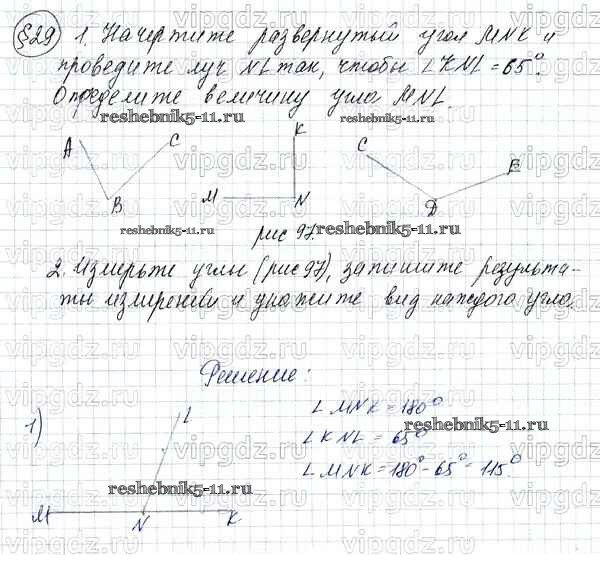 §29 1. Начертите развернутый угол MNK и
проведите луч NL так, чтобы ∠KNL = 65°.
Определите величину угла MNL.
reshebnik5-11.ru
reshebnik5-11.ru
A C K C E
B M N D
reshebnik5-11.ru
reshebnik5-11.ru
рис 97.
2. Измерьте углы (рис 97), запишите результа-
ты измерений и укажите вид каждого угла.
Решение:
1) L
∠MNK = 180°
reshebnik5-11.ru
∠KNL = 65°
∠MNK = 180° - 65° = 115°.
reshebnik5-11.ru
M N K
vipgdz.ru